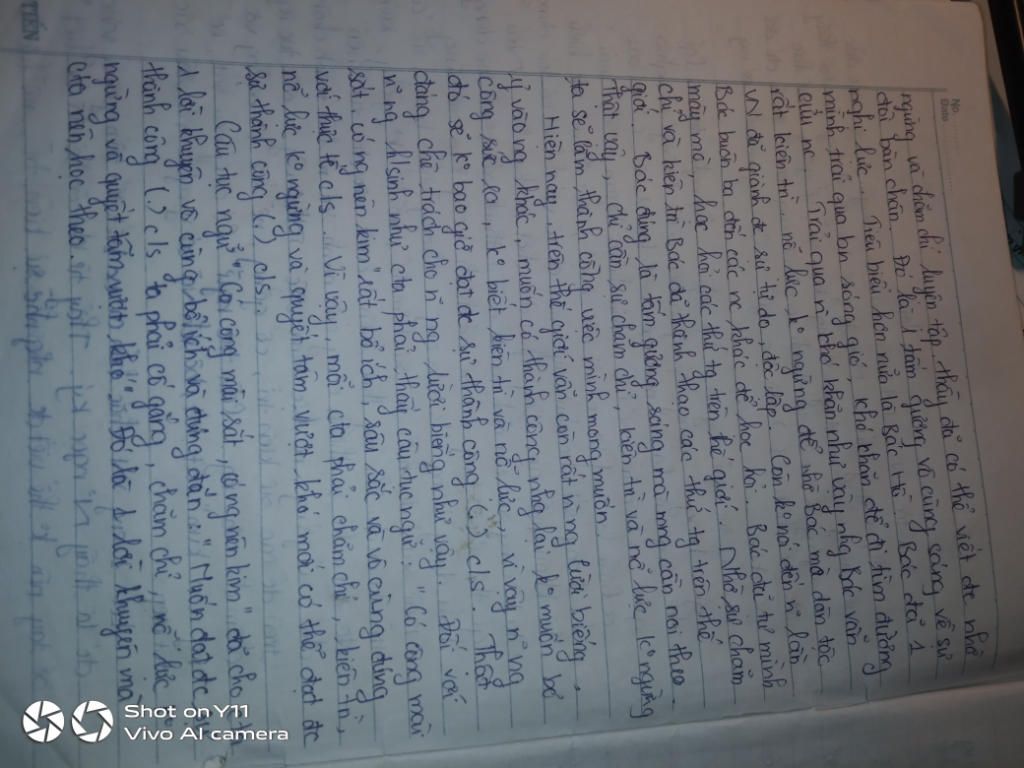 No.
Date
ngừng và chăm chỉ luyện tập, thầy đã có thể viết đc nhờ
đôi bàn chân. Đó là 1 tấm gương vô cùng sáng về sự
nghị lực. Tiêu biểu hơn nữa là Bác Hồ. Bác đã 1
mình trải qua bn sóng gió, khó khăn để đi tìm đường
cứu nc. Trải qua n~ khó khăn như vậy nhg Bác vẫn
rất kiên trì, nỗ lực k° ngừng để nhờ Bác mà dân tộc
VN đã giành đc sự tự do, độc lập. Còn k° nói đến n~ lần
Bác buôn ba đến các nc khác để học hỏi. Bác đã tự mình
mày mò, học hỏi các thứ tg trên thế giới. Nhờ sự chăm
chỉ và kiên trì Bác đã thành thạo các thứ tg trên thế
giới. Bác đúng là tấm gương sáng mà mng cần noi theo.
Thật vậy, chỉ cần sự chăm chỉ, kiên trì và nỗ lực k° ngừng
ta sẽ làm thành công việc mình mong muốn.
Hiện nay, trên thế giới vẫn còn rất n~ ng lười biếng,
ỷ vào ng khác, muốn có thành công nhg lại k° muốn bỏ
công sức ra, k° biết kiên trì và nỗ lực, vì vậy n~ ng
đó sẽ k° bao giờ đạt đc sự thành công (.) c/s. Thật
đáng chê trách cho n~ ng lười biếng như vậy. Đối với
n~ ng h/sinh như cta phải thấy câu tục ngữ: "Có công mài
sắt, có ng nên kim" rất bổ ích, sâu sắc và vô cùng đúng
với thực tế c/s. Vì vậy, mỗi cta phải chăm chỉ, kiên trì,
nỗ lực k° ngừng và quyết tâm vượt khó mới có thể đạt đc
sự thành công (.) c/s.
Câu tục ngữ "Có công mài sắt, có ng nên kim" đã cho
1 lời khuyên vô cùng bổ ích và đúng đắn. Muốn đạt đc sự
thành công (.) c/s ta phải cố gắng, chăm chỉ, nỗ lực
ngừng và quyết tâm vượt khó. Đó là 1 lời khuyên mà
cta nên học theo.
TIẾN
Shot on Y11
Vivo AI camera